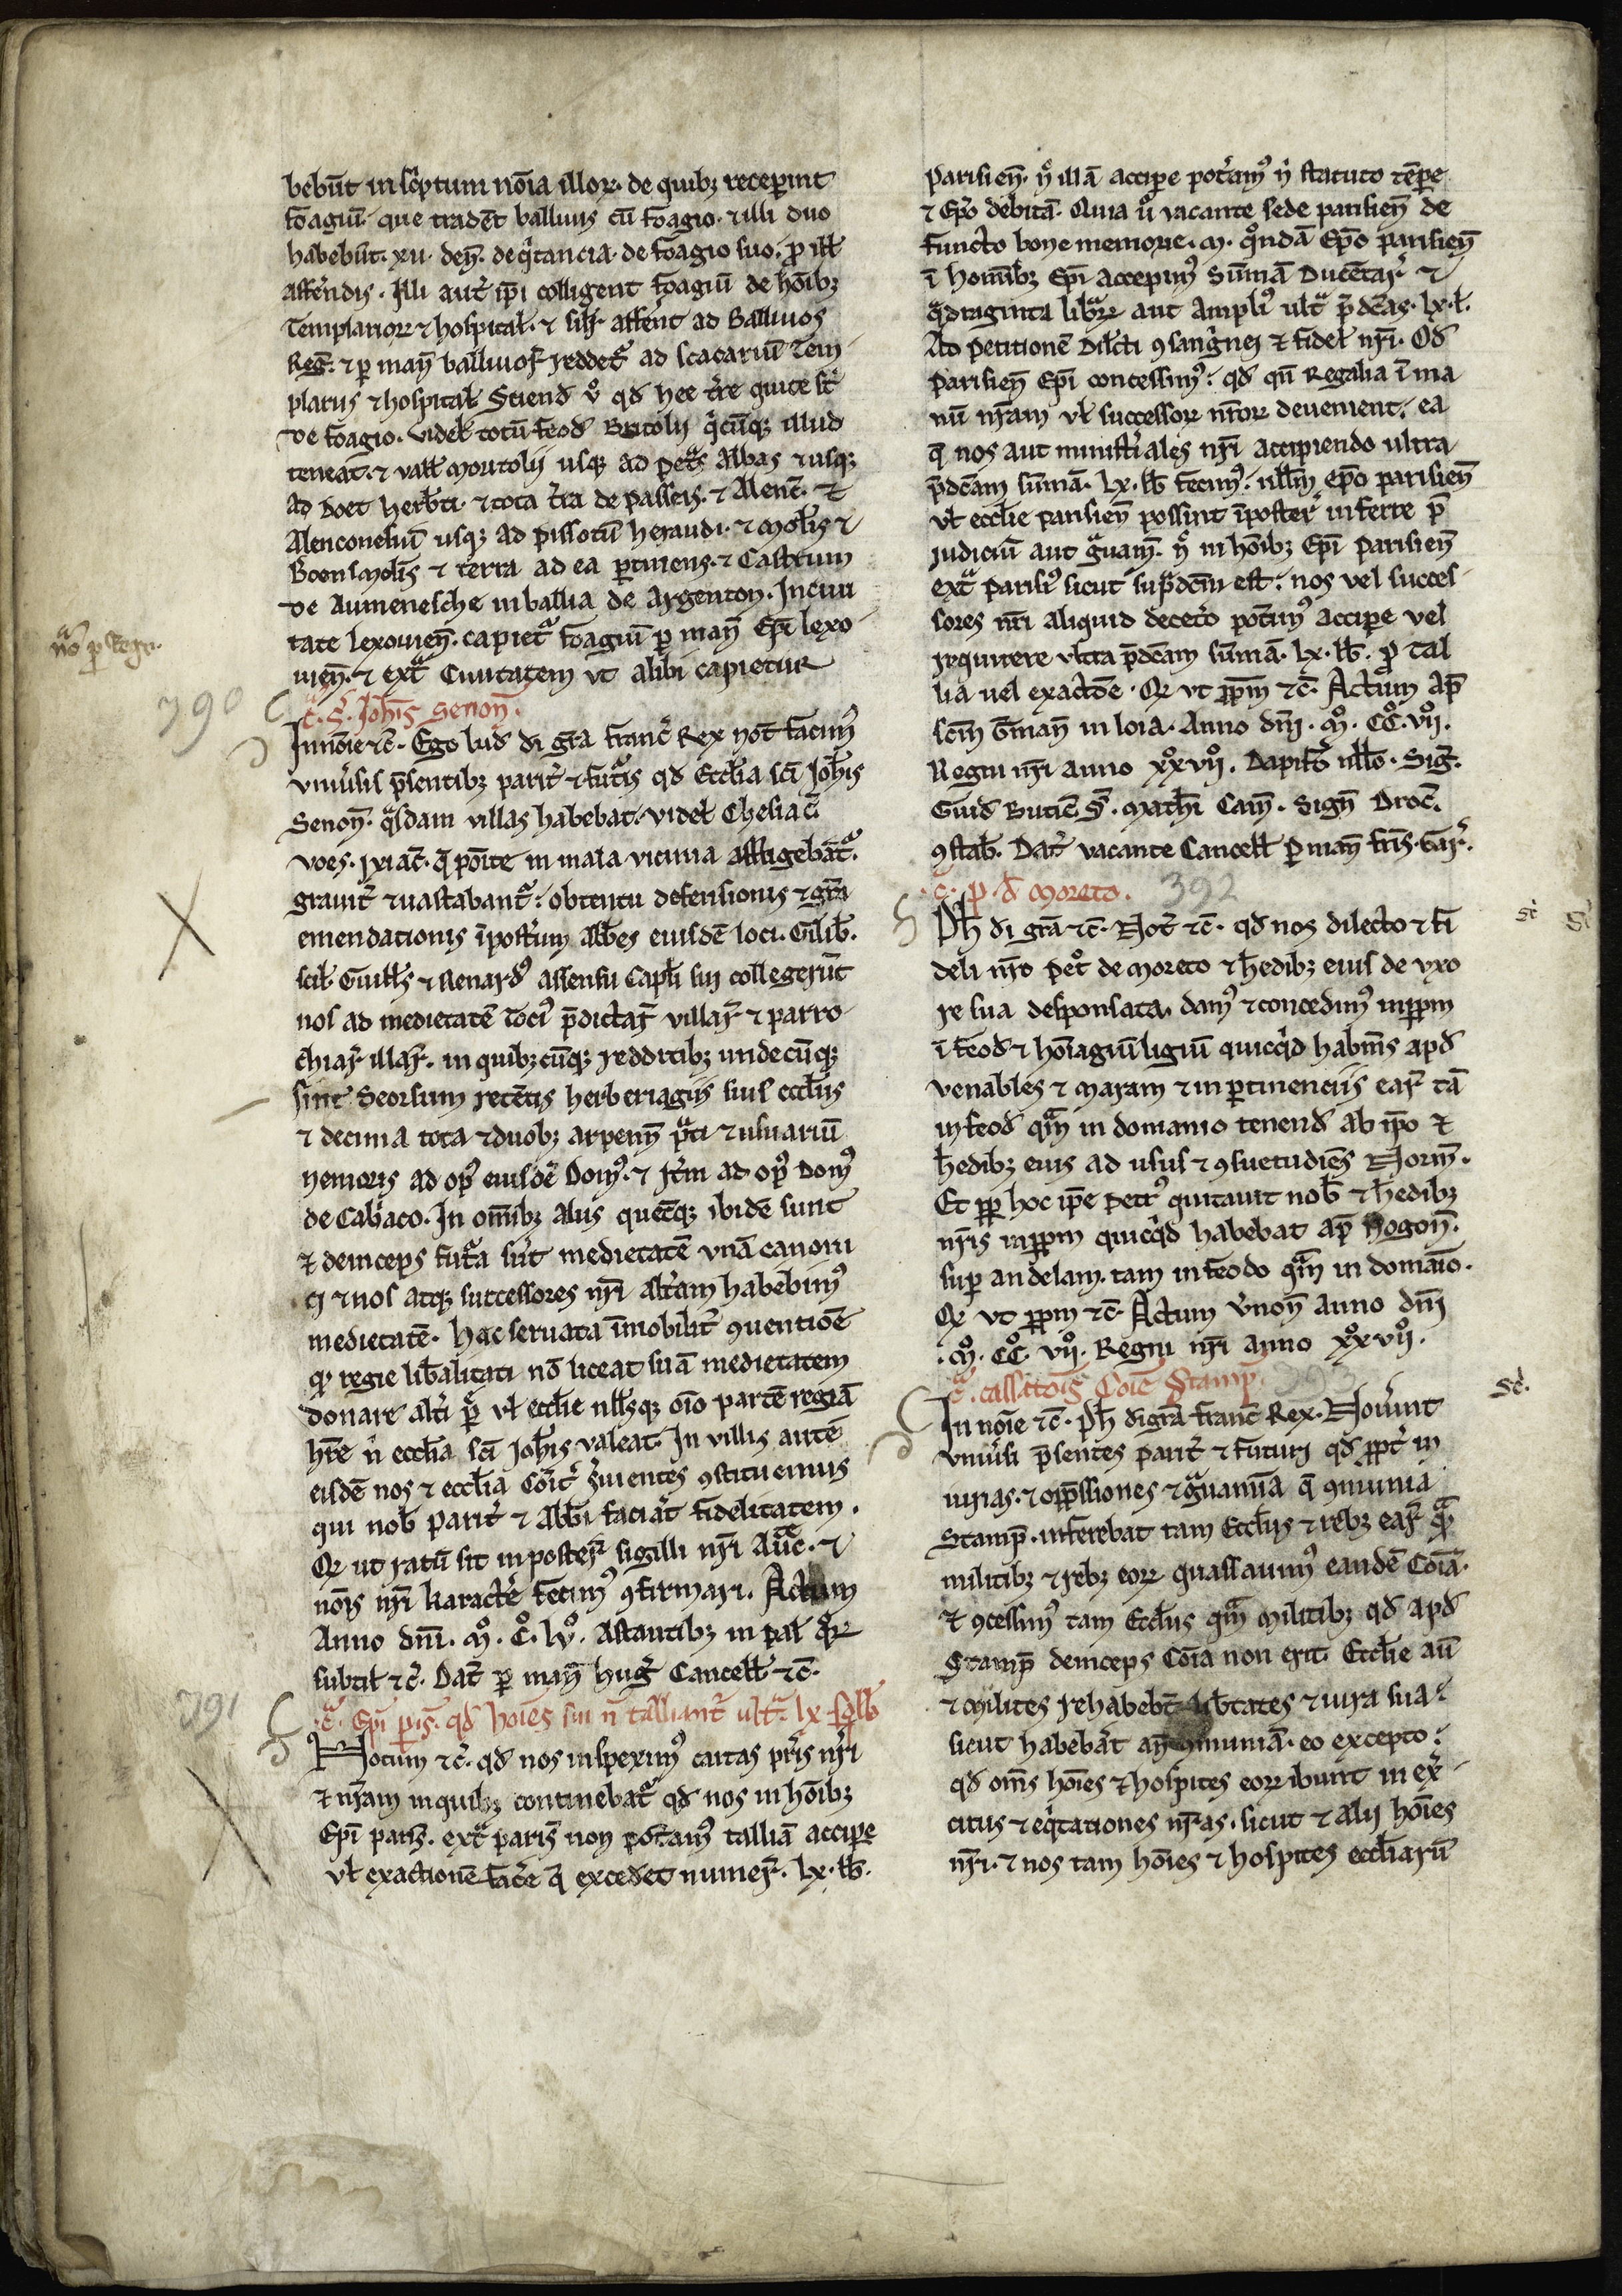 bebūt in sc̓ptum nōia illoꝝ. de quibꝫ receperint
foagiū. que tradēt balliuis cū foagio. ⁊ illi duo
habebūt. xii. deñ. de q̓tancia. de foagio suo. ꝓ ill̵
affērndis. Illi aut̓ ip̄i colligent foagiū de hōibꝫ
Templarioꝝ ⁊ hospital̵. ⁊ sil̵r affent ad Balliuos
Reḡ. ⁊ ꝑ manꝰ balliuoꝝ reddet᷑ ad scacariū Tem
plariis ⁊ hospital̵ Sciend̵ ỏ qd̵ hee tr̓re quite st̄
de foagio. videl̵ totū feod̵ Britolij q̓cūqꝫ illud
teneat. ⁊ vall̵ moritolij usqꝫ ad pet̓s Albas ⁊ usqꝫ
ad Doet herb̵ti. ⁊ tota t̓ra de passeis. ⁊ Alenc̄. ⁊
Alenconesiū usqꝫ ad pissotū heraudi. ⁊ mol̵is ⁊
Boensmol̵is ⁊ terra ad ea ꝑtinens. ⁊ Castrum
de Aumenesche in ballia de Argenton. In ciui
tate lexouien̄. capiet᷑ foagiū ꝑ manꝰ Ep̄i lexo
uien̄. ⁊ ext̓ Ciuitatem ut alibi capietur
nō ꝑ Regr̄.
390
.c. S. Joh̄is Senon̄.
In nōie ⁊c̄. Ego lud̵ di gr̄a franc̄ Rex not̄ facimꝰ
vniu̓sis p̄sentibꝫ parit̓ ⁊ fut̓is qd̵ Eccl̵ia sc̄i Joh̄is
Senon̄. q̓sdam villas habebat. videl̵ Chesiac̄
voes. Ixiac̄. q̄ poīte in mala vicinia affligebāt᷑.
grauit̓ ⁊ uastabant᷑. obtentu defensionis ⁊ gr̄a
emendationis īpost̓um abb̵es eiusdē loci. Gilib̵.
scil̵. Guill̵s ⁊ Renardꝰ assensu Capl̵i sui collegerūt
nos ad medietatē tociꝰ p̄dictaꝝ villaꝝ ⁊ parro
chiaꝝ illaꝝ. in quibꝫcūqꝫ redditibꝫ undecūqꝫ
sint Seorsum retētis herbeiagiis suis eccl̵iis
⁊ decima tota ⁊ duobꝫ arpenn̄ p̓ti ⁊ usuariū
nemoris ad opꝰ eiusdē Domꝰ. ⁊ It̓m ad opꝰ Domꝰ
de Cab̓aco. In omībꝫ aliis quecūqꝫ ibidē sunt
⁊ deinceps fut̓a sūt medietatē vnā canoni
ci ⁊ nos atqꝫ successores nr̄i alt̓am habebimꝰ
medietatē. hac seruata īmobilit̓ ꝯuentiōe
qꝫ regie lib̵alitati nō liceat suā medietatem
donare alt̓i p̓ vl̵ eccl̵ie nll̵isqꝫ oīo partē regiā
hr̄e n̓ eccl̵ia sc̄i Joh̄is valeat. In villis autē
eisdē nos ⁊ eccl̵ia coīt̓ s̓uientes ꝯstituemus
qui nob̵ parit̓ ⁊ Abb̵i faciāt fidelitatem.
Qꝫ ut ratū sit in posteꝝ sigilli nr̄i Auc̄te. ⁊
nōis nr̄i karact̓e fecimꝰ ꝯfirmari. Actum
Anno dn̄i. mº. Cº. lvº. Astantibꝫ in pal̵ q̓ꝝ
subtil̵ ⁊c̄. Dat̄ ꝑ manꝰ hug̓ Cancell̵ ⁊c̄.
391
.c̓. Ep̄i paris̄. qd̵ hoīes sui n̄ talliant᷑ ult̓. lx. sol̵lb̵
Notum ⁊c̄. qd̵ nos inspeximꝰ cartas pr̄is nr̄i
⁊ nr̄am in quibꝫ continebat᷑ qd̵ nos in hōibꝫ
Ep̄i paris̄. ext̓ paris̄ non pot̓amꝰ talliā accip̱e
vl̵ exactionē fac̓e q̄ excedet numeꝝ. lx. lb̵.
parisien̄. n̓ illā accip̱e pot̓amꝰ n̓ statuto tēp̱e
⁊ Ep̄o debitā. Quia ū vacante sede parisien̄ de
functo bone memorie. m. q̓ndā Ep̄o parisien̄
ī homībꝫ Ep̄i accepimꝰ sūmā Ducētaꝝ ⁊
q̓draginta libraꝝ aut ampliꝰ ult̓ p̄dc̄as. lx. l̵.
Ad petitionē Dil̵cti ꝯsanguinei ⁊ fidel̵ nr̄i. Od̵
parisien̄ Ep̄i concessimꝰ. qd̵ qn̄ Regalia ī ma
nū nr̄am vl̵ successoꝝ nr̄oꝝ deuenient. ea
q̄ nos aut ministr̓iales nr̄i accipiendo ultra
p̄dc̄am sūmā. lx. lb̵ fecimꝰ. nll̵m ep̄o parisien̄
vl̵ eccl̵ie parisien̄ possint īposteꝝ inferre p̄
iudiciū aut g̓uam̄. n̓ in hōibꝫ Ep̄i parisien̄
ext̓ parisꝰ sicut sup̓dc̄m est. nos vel succes
sores nr̄i aliquid decet̓o pot̓imꝰ accip̱e vel
requirere vltra p̄dc̄am sūmā. lx. lb̵. ꝓ tal
lia uel exactōe. Qꝫ ut ꝑpm̄ ⁊c̄. Actum ap̄
sc̄m G̓man̄ in loia. Anno dn̄i. mº. CCº. viiº.
Regni nr̄i anno xxºviiº. Dapif̓o nllo. Sig̓.
Guid̵ Butic̄. S̓. math̄i Cam̄. Sign̄ Droc̄.
ꝯstab̵. Dat̓ vacante Cancell̵ ꝑ manꝰ fr̄is. Gar̓.
.c̓. p. d̵ Moreto. 392
Ph̵ di gr̄a ⁊c̄. Not̄ ⁊c̄. qd̵ nos dilecto ⁊ fi
deli nr̄o Pet̓ de Moreto ⁊ h̵edibꝫ eius de vxo
re sua desponsata. damꝰ ⁊ concedimꝰ inꝑpm
ī feod̵ ⁊ hoīagiū ligiū quicq̓d habem̄s apd̵
venables ⁊ maram ⁊ in ꝑtinenciis eaꝝ tā
in feod̵ qm̄ in domanio tenend̵ ab ip̄o ⁊
h̵edibꝫ eius ad usus ⁊ ꝯsuetudiēs Norm̄.
Et ꝓp hoc ip̄e Petrꝰ quitauit nob̵ ⁊ h̵edibꝫ
nr̄is inꝑpm quicq̓d habebat ap̄ Nogon̄.
suꝑ andelam. tam in feodo qm̄ in domaīo.
Qꝫ ut ꝑpm ⁊c̄. Actum v̓non̄ anno dn̄i
.mº. CCº. viiº. Regni nr̄i anno xxºviiº.
c̓. cassatōis Coīe Stamp̄. 393
In nōie ⁊c̄. Ph̵ di gr̄a franc̄ Rex. Nou̓int
vniu̓si p̄sentes parit̓ ⁊ futuri qd̵ ꝓpt̓ in
iurias. ⁊ opp̄ssiones ⁊ g̓uamīa q̄ ꝯmunia
Stamp̄. inferebat tam Eccl̵iis ⁊ rebꝫ eaꝝ qm̄
militibꝫ ⁊ rebꝫ eoꝝ quassauimꝰ eandē Coīā.
⁊ ꝯcessimꝰ tam Eccl̵iis qm̄ militibꝫ qd̵ apd̵
Stamp̄ deinceps Coīa non erit. Eccl̵ie aū
⁊ milites rehabebt̄ lib̵tates ⁊ iura sua.
sicut habebāt an̄ ꝯmuniā. eo excepto.
qd̵ om̄s hoīes ⁊ hospites eoꝝ ibunt in ex̓
citus ⁊ eq̓tationes nr̄as. sicut ⁊ alij hoīes
nr̄i. ⁊ nos tam hoīes ⁊ hospites eccl̵iarū